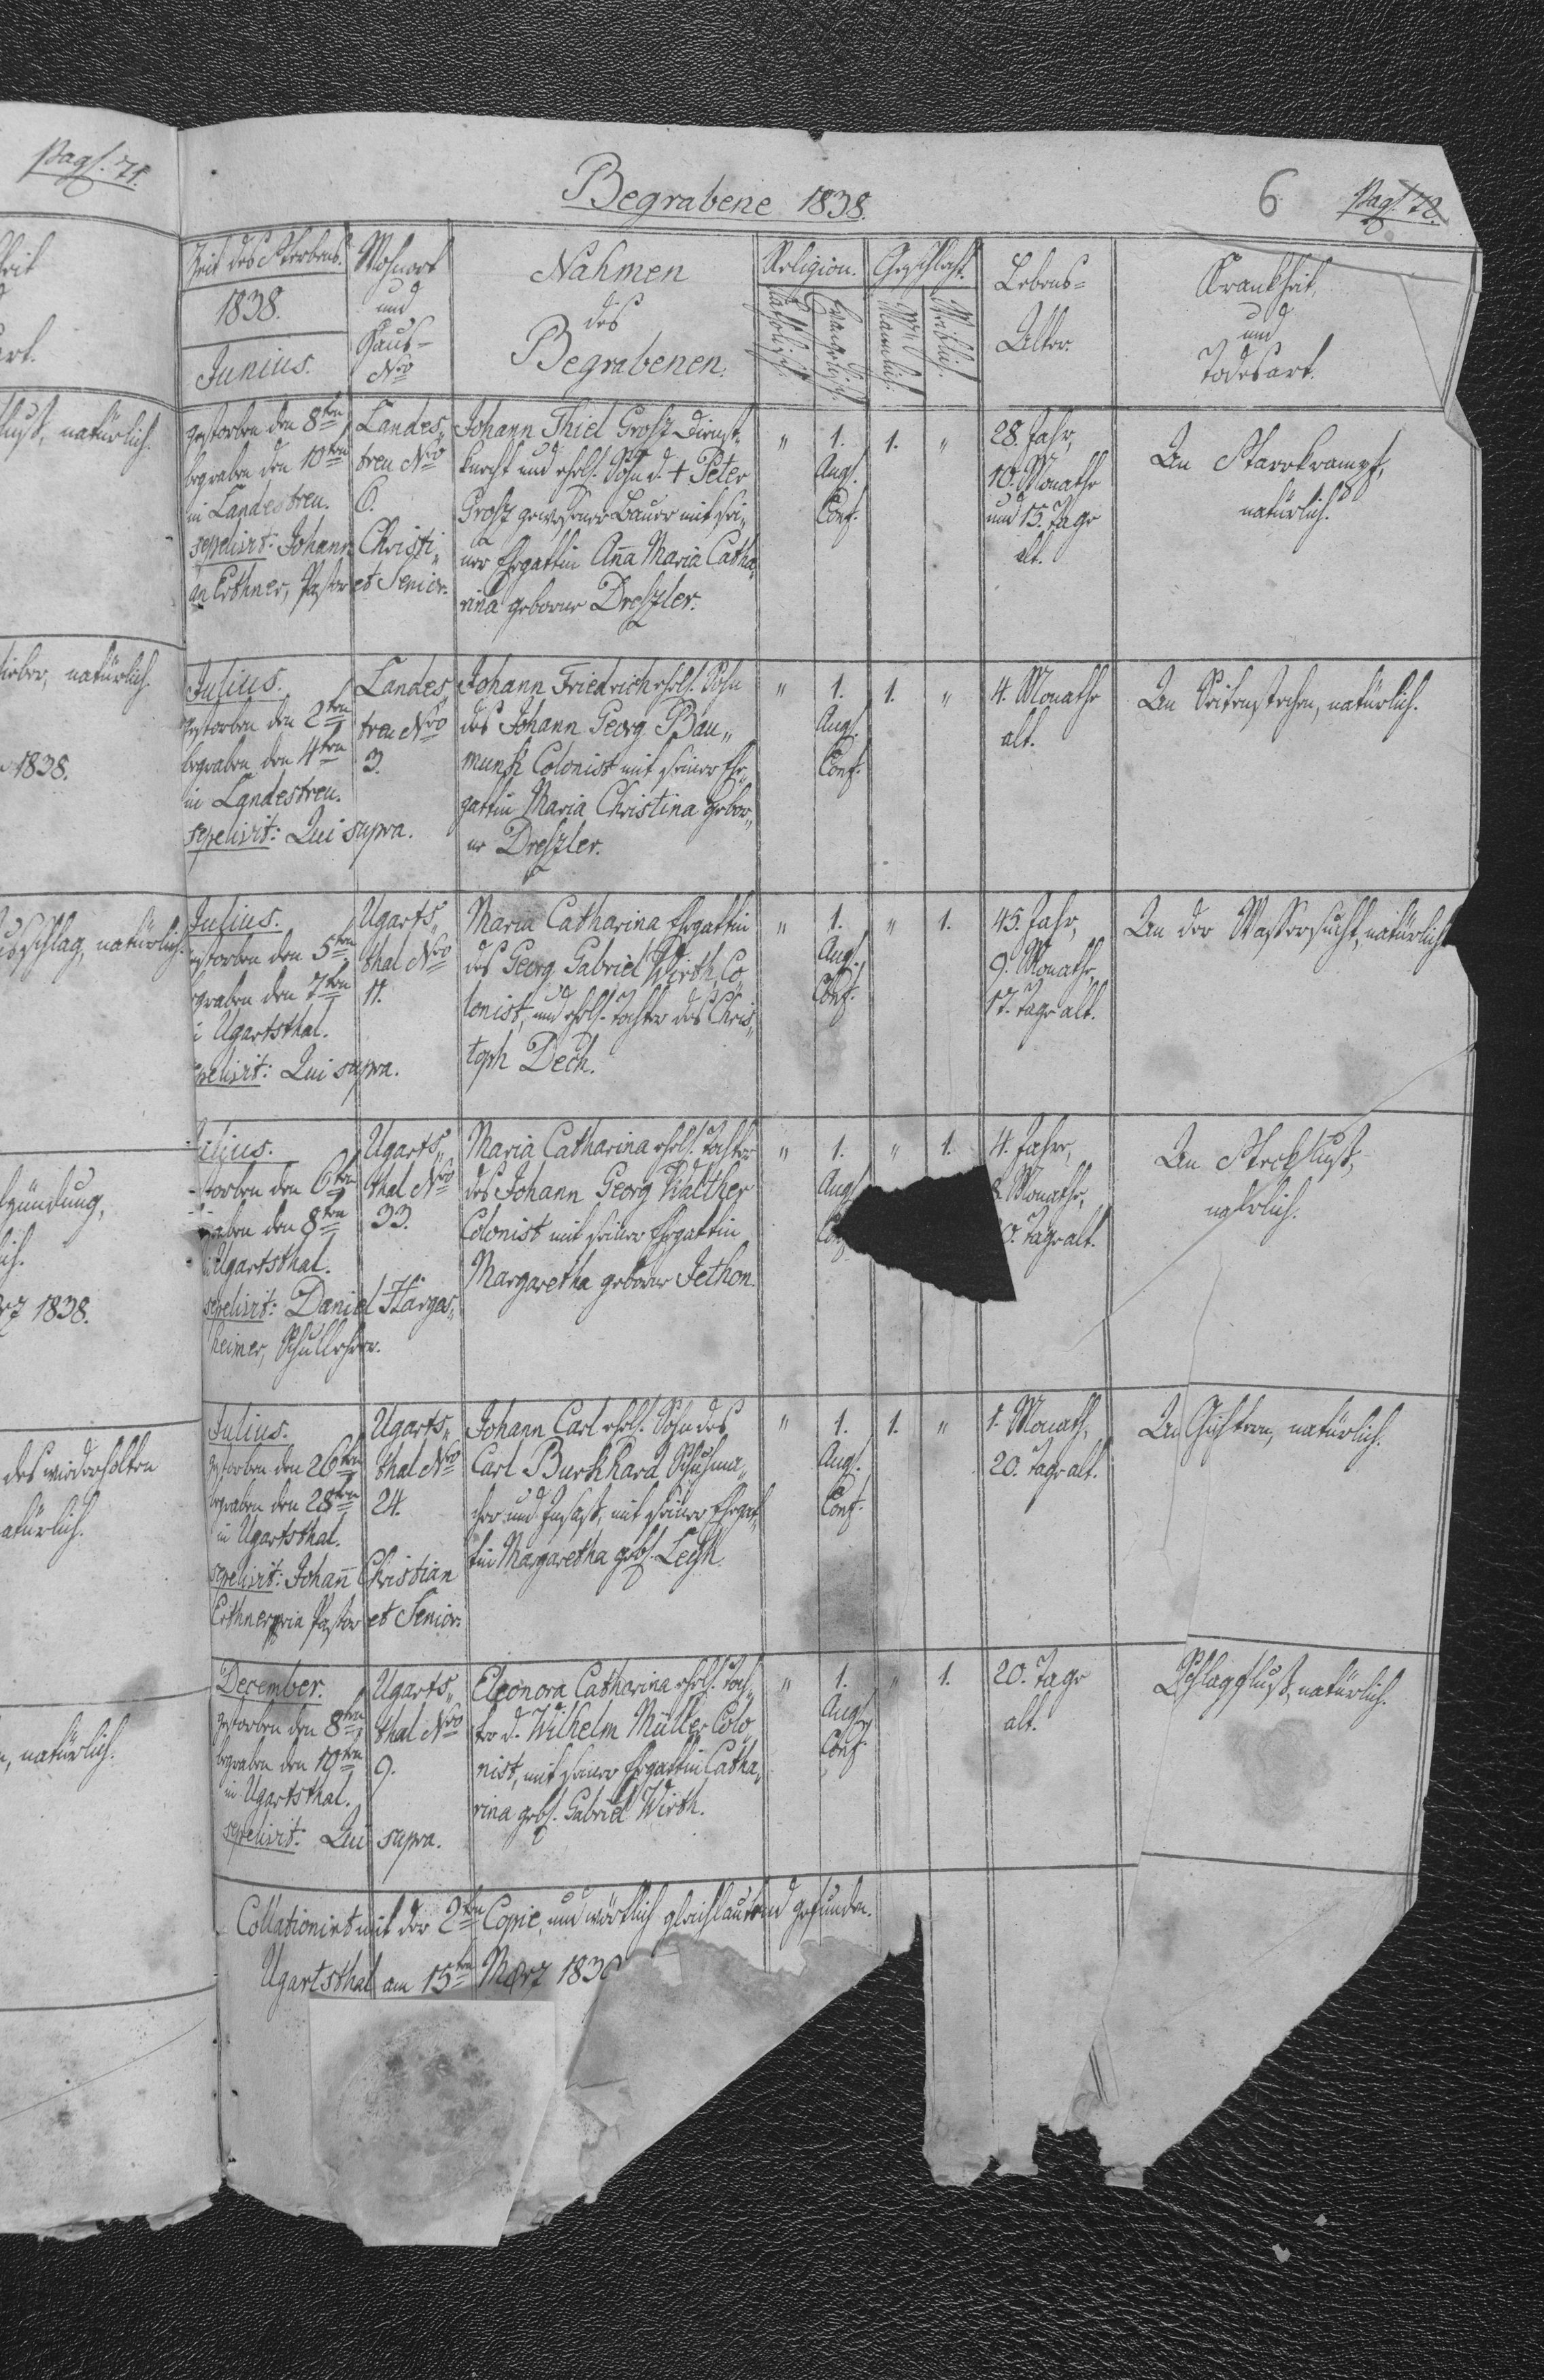 pag. 71.
Begrabene 1838.
6
pag. 72.
Zeit des Sterbens.
1838.
Junius.
Wohnort
und
Haus-
Nro
Nahmen
des
Begrabenen.
Religion.
Katholisch.
Evangelisch.
Geschlecht.
Mänlich.
Weiblich.
Lebens-
Alter.
Krankheit,
und
Todesart.
gestorben den 8ten
begraben den 10ten
in Landestreu.
sepelivit: Johann Christi„
an Erthner, Pastor et Senior.
Landes„
treu Nro
6.
Johann Thiel Grosz Dienst-
knecht und ehel. Sohn d. + Peter
Grosz gewesener Bauer mit sei„
ner Ehegattin Aña Maria Catha„
rina geborne Dreszler.
"
1.
Aug.
Conf.
1.
"
28. Jahr,
10. Monathe
und 15. Tage
alt.
An Starrkrampf,
natürlich.
Julius.
gestorben den 2ten
begraben den 4ten
in Landestreu.
sepelivit: Qui supra.
Landes
treu Nro
3.
Johann Friedrich ehel. Sohn
des Johann Georg Bau„
munk Colonist mit seiner Ehe„
gattin Maria Christina gebor„
ne Dreszler.
"
1.
Aug.
Conf.
1.
"
4. Monathe
alt.
An Seitenstechen, natürlich.
Julius.
gestorben den 5ten
graben den 7ten
Ugartsthal.
sepelivit: Qui supra.
Ugarts„
thal Nro
11.
Maria Catharina Ehegattin
des Georg Gabriel Wirth, Co„
lonist, und ehel. Tochter des Chris„
toph Dech.
"
1.
Aug.
Conf.
"
1.
45. Jahr,
9. Monathe,
17. Tage alt.
An der Wassersucht, natürlich
Julius.
storben den 6ten
aben den 8ten
Ugartsthal.
sepelivit: Daniel Harges„
heimer, Schullehrer.
Ugarts„
thal Nro
33.
Maria Catharina ehel. Tochter
des Johann Georg Walther
Colonist mit seiner Ehegattin
Margaretha geborne Jethon.
"
1.
Aug.
"
1.
4. Jahr,
Monathe,
Tage alt.
An Steckfluß,
Julius.
gestorben den 26ten
begraben den 28ten
in Ugartsthal.
sepelivit: Johañ Christian
Erthner Pastor et Senior.
Ugarts„
thal Nro
24.
Johann Carl ehel. Sohn des
Carl Burkhard Schuhma„
cher und Insaß, mit seiner Ehegat„
tin Margaretha geb. Leyh.
"
1.
Aug.
Conf.
1.
"
1. Monath,
20. Tage alt.
An Gichtern, natürlich.
December.
gestorben den 8ten
begraben den 10ten
in Ugartsthal.
sepelivit: Qui supra.
Ugarts„
thal Nro
9.
Eleonora Catharina ehel. Toch„
ter d. Wilhelm Müller Colo„
nist, mit seiner Ehegattin Catha„
rina geb. Gabriel Wirth.
"
1.
Aug.
Conf.
"
1.
20. Tage
alt.
Schlagfluß, natürlich.
Collationirt mit der 2ten Copie, und wörtlich gleichlautend gefunden.
Ugartsthal am 15ten März 183